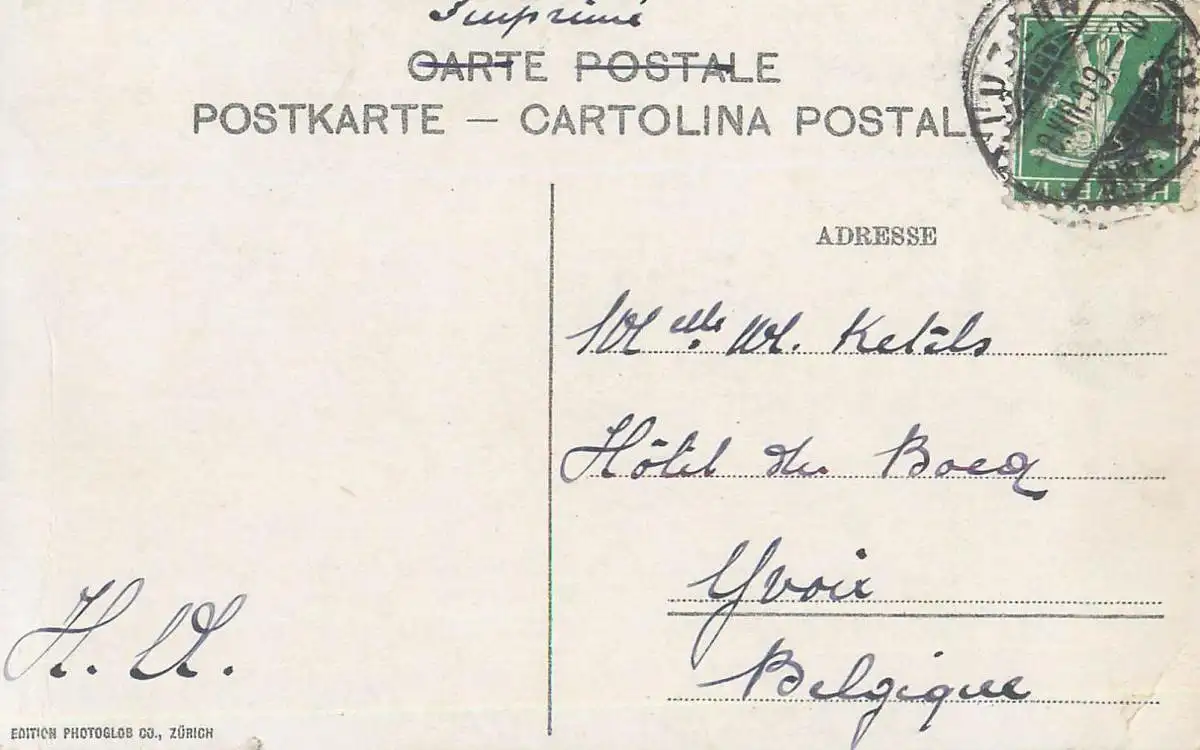 Imprimé
CARTE POSTALE
POSTKARTE — CARTOLINA POSTAL
ADRESSE
Melle M. Ketels
Hôtel du Bocq
Yvoir
Belgique
H. M.
EDITION PHOTOGLOB CO., ZÜRICH